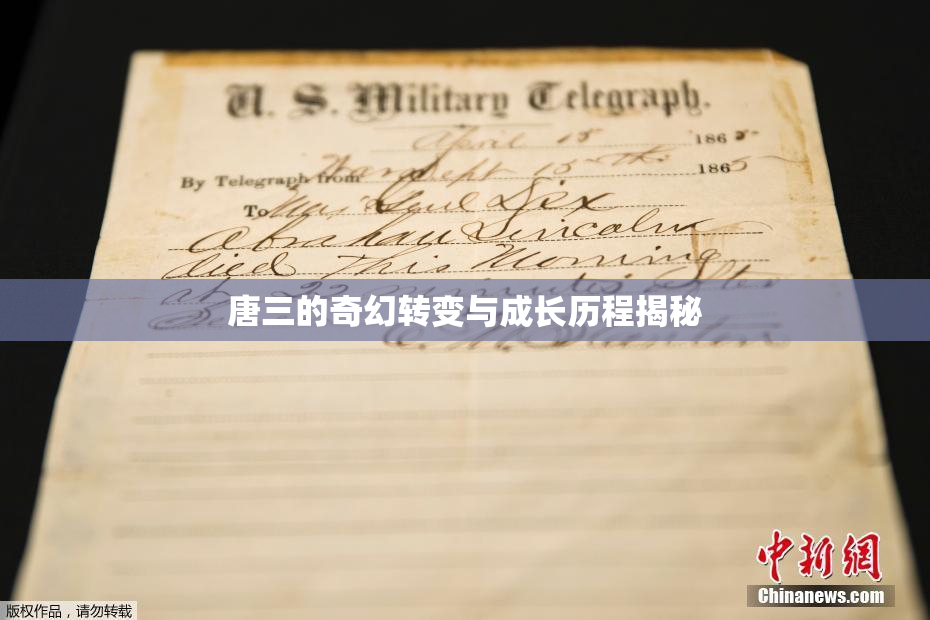 U. S. Military Telegraph.
April 15 1865
By Telegraph from War Dept 15th 1865
To Maj Genl Dix
Abraham Lincoln
died This Morning
at 22 minutes after
唐三的奇幻转变与成长历程揭秘
E. M. Stanton
中新网
Chinanews.com
版权作品,请勿转载